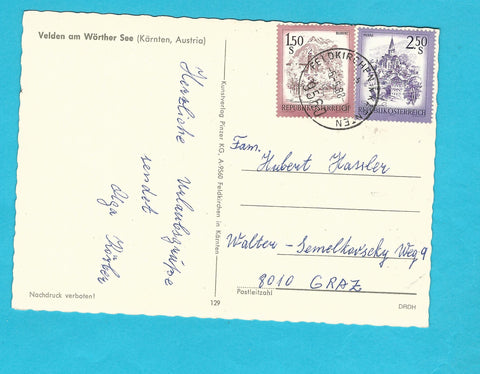 Velden am Wörther See (Kärnten, Austria)
Herzliche Urlaubsgrüße
sendet
Olga
Nachdruck verboten!
Kunstverlag Pinzer KG., A-9560 Feldkirchen in Kärnten
129
1.50
S
REPUBLIK ÖSTERREICH
2.50
S
REPUBLIK ÖSTERREICH
FELDKIRCHEN
9560
Fam.
Hubert Hassler
Walter - Semetkowsky Weg 9
8010 GRAZ
Postleitzahl
DRDH